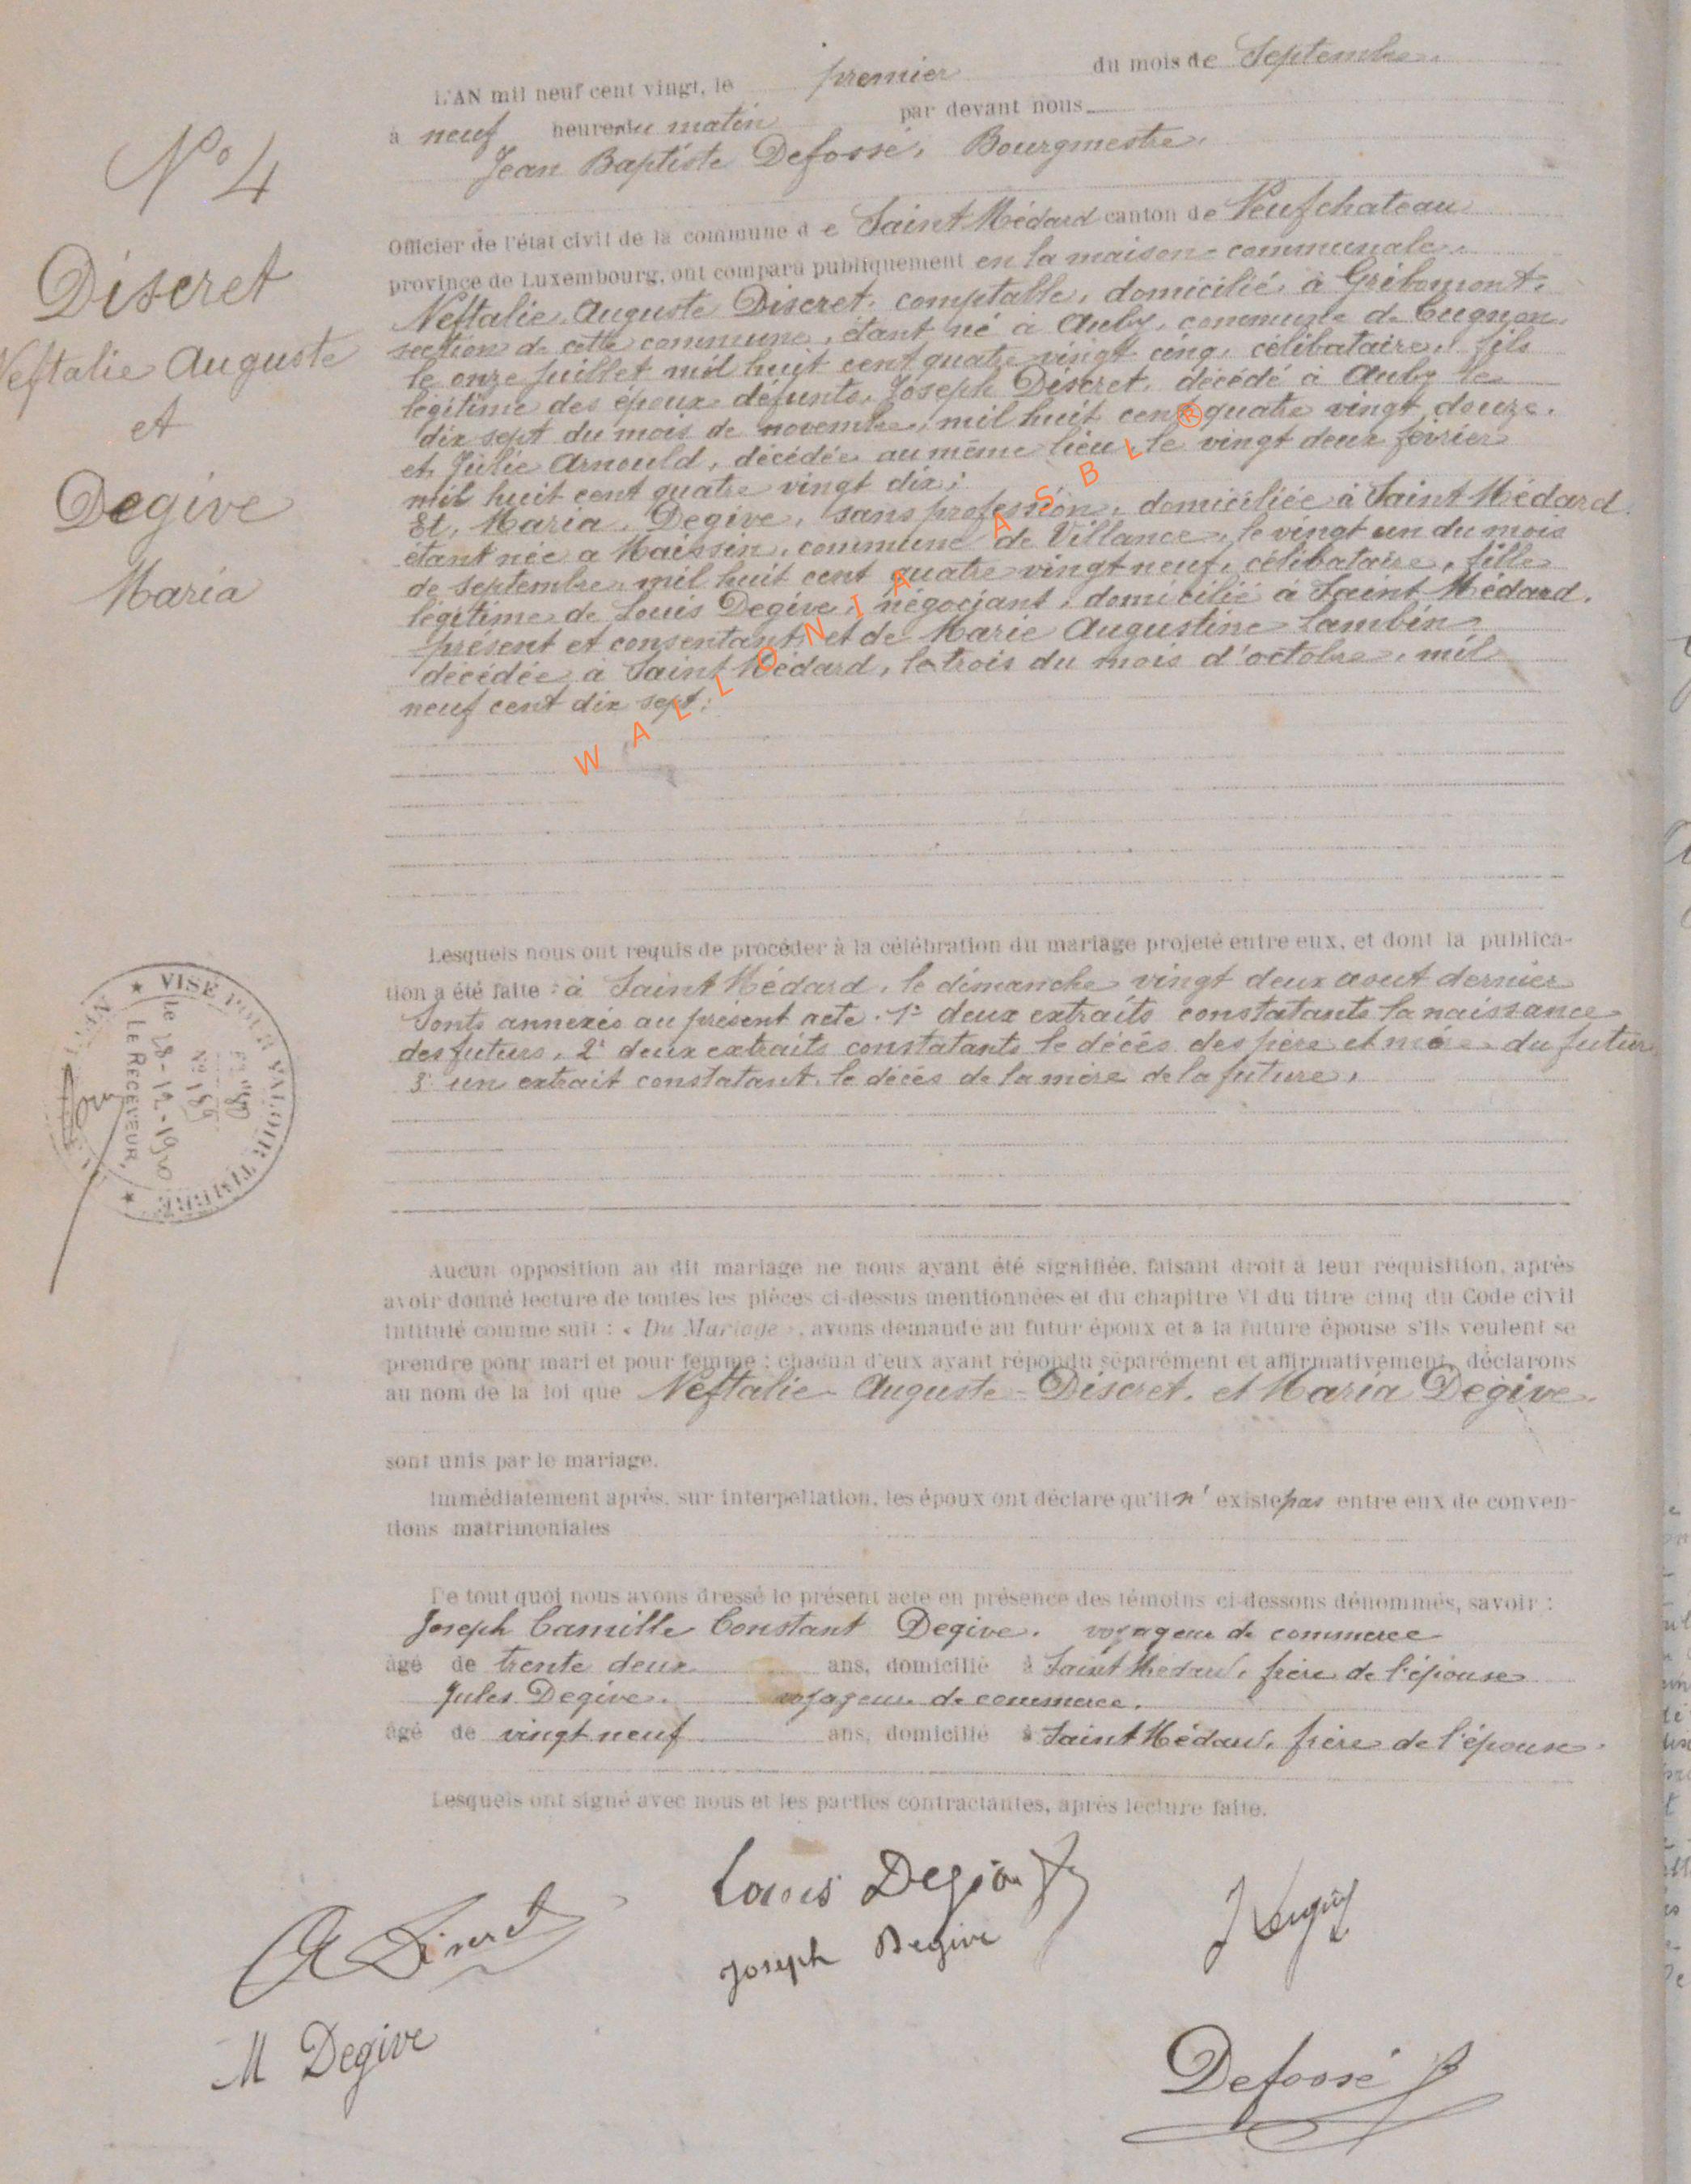 N° 4
Discret
Neftalie Auguste
et
Degive
Maria
L'AN mil neuf cent vingt, le premier du mois de Septembre.
à neuf heures du matin par devant nous
Jean Baptiste Defossé, Bourgmestre,
Officier de l'état civil de la commune de Saint Médard canton de Neufchateau
province de Luxembourg, ont comparu publiquement en la maison communale.
Neftalie Auguste Discret, comptable, domicilié à Gribomont,
section de cette commune, étant né à Auby, commune de Cugnon,
le onze juillet mil huit cent quatre vingt cinq, célibataire, fils
légitime des époux défunts, Joseph Discret, décédé à Auby le
dix sept du mois de novembre, mil huit cent quatre vingt douze.
et Julie Arnould, décédée au même lieu, le vingt deux février
mil huit cent quatre vingt dix;
Et, Maria Degive, sans profession, domiciliée à Saint Médard.
étant née à Maissin, commune de Villance, le vingt un du mois
de septembre, mil huit cent quatre vingt neuf, célibataire, fille
légitime de Louis Degive, négociant, domicilié à Saint Médard.
présent et consentant, et de Marie Augustine Lambin
décédée à Saint Médard, le trois du mois d'octobre, mil
neuf cent dix sept;
WALLONIA ASBL ®
Lesquels nous ont requis de procéder à la célébration du mariage projeté entre eux, et dont la publica-
tion a été faite : à Saint Médard, le dimanche vingt deux aout dernier
Sonts annexés au présent acte. 1° deux extraits constatants la naissance
des futurs, 2° deux extraits constatants le décès des père et mère du futur
3° un extrait constatant le décès de la mère de la future,
★ VISÉ POUR VALOIR TIMBRE ★
N° 189
le 28-12-1920
LE RECEVEUR,
Aucun opposition au dit mariage ne nous ayant été signifiée, faisant droit à leur réquisition, après
avoir donné lecture de toutes les pièces ci-dessus mentionnées et du chapitre VI du titre cinq du Code civil
intitulé comme suit : « Du Mariage », avons demandé au futur époux et à la future épouse s'ils veulent se
prendre pour mari et pour femme ; chacun d'eux ayant répondu séparément et affirmativement, déclarons
au nom de la loi que Neftalie Auguste Discret, et Maria Degive.
sont unis par le mariage.
Immédiatement après, sur interpellation, les époux ont déclaré qu'il n' existe pas entre eux de conven-
tions matrimoniales
De tout quoi nous avons dressé le présent acte en présence des témoins ci-dessous dénommés, savoir :
Joseph Camille Constant Degive. voyageur de commerce
âgé de trente deux ans, domicilié à Saint Médard, frère de l'épouse
Jules Degive. voyageur de commerce.
âgé de vingt neuf ans, domicilié à Saint Médard, frère de l'épouse.
Lesquels ont signé avec nous et les parties contractantes, après lecture faite.
Louis Degive
A Discret
Joseph Degive
M Degive
Defossé